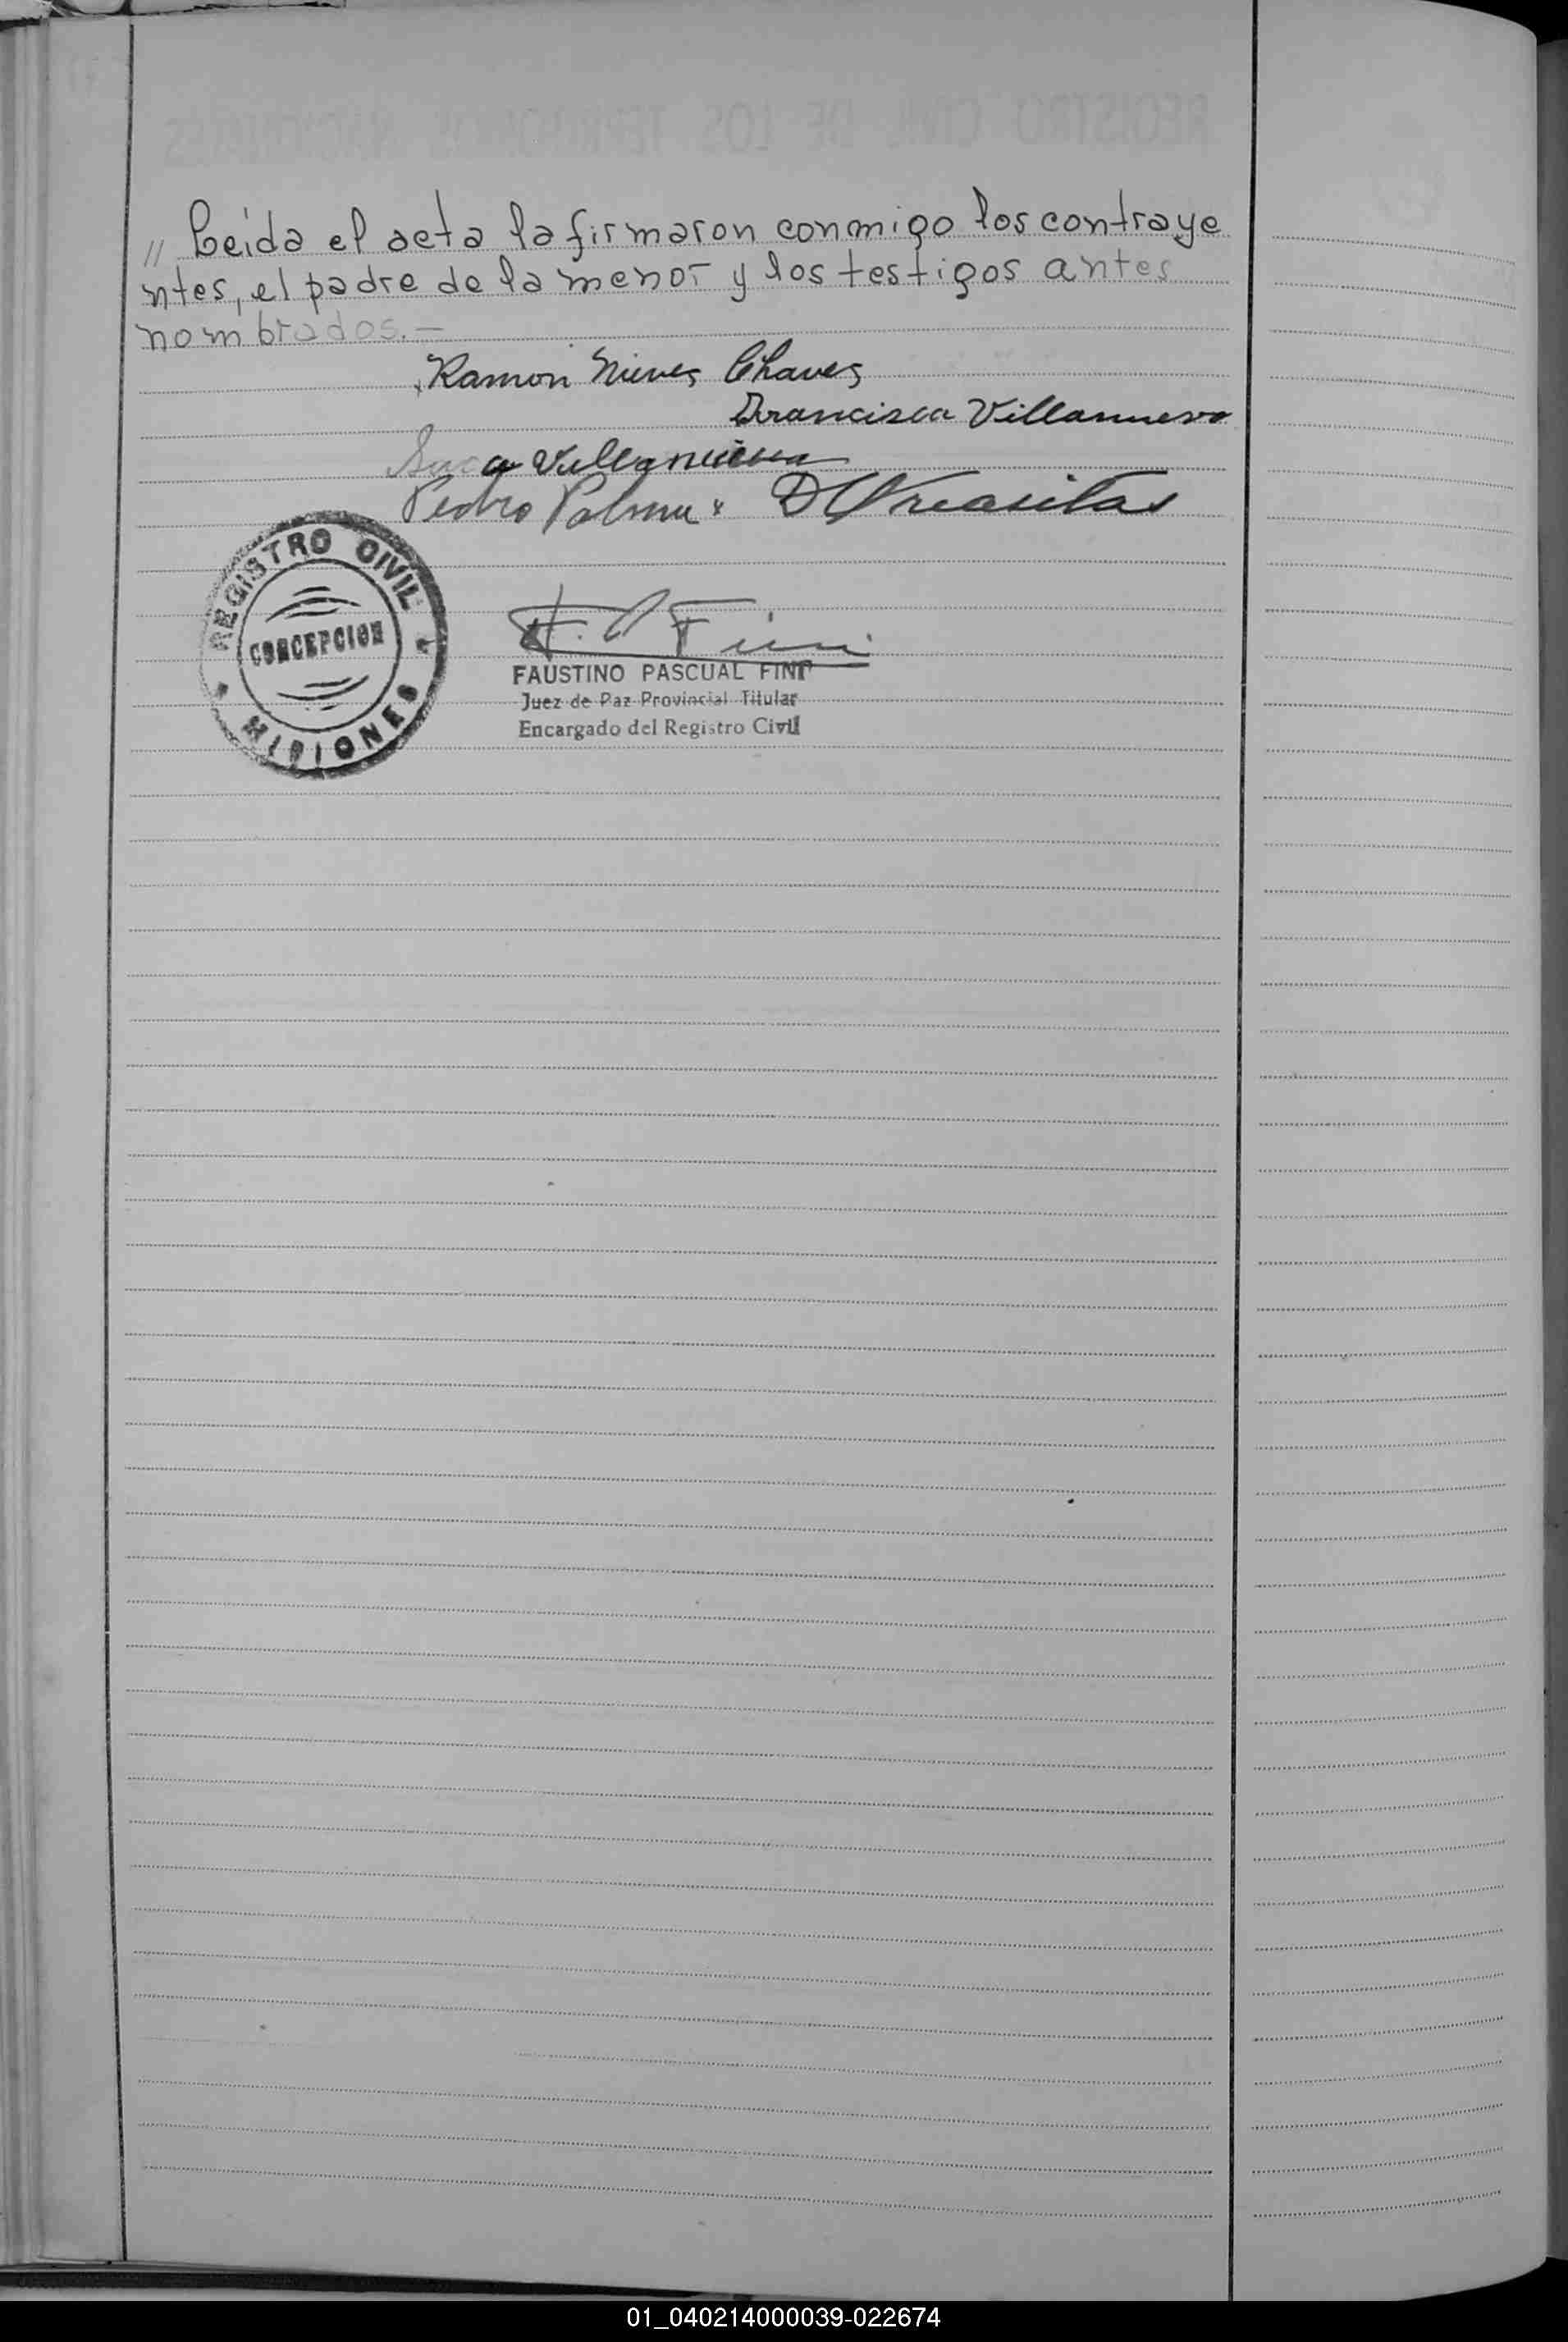 // Leida el acta la firmaron conmigo los contraye
ntes, el padre de la menor y los testigos antes
nombrados.—
Ramon Nieves Chaves
Francisca Villanueva
Villanueva
Pedro Palma
REGISTRO CIVIL
CONCEPCION
MISIONES
F. P. Fini
FAUSTINO PASCUAL FINI
Juez de Paz Provincial Titular
Encargado del Registro Civil
01_040214000039-022674